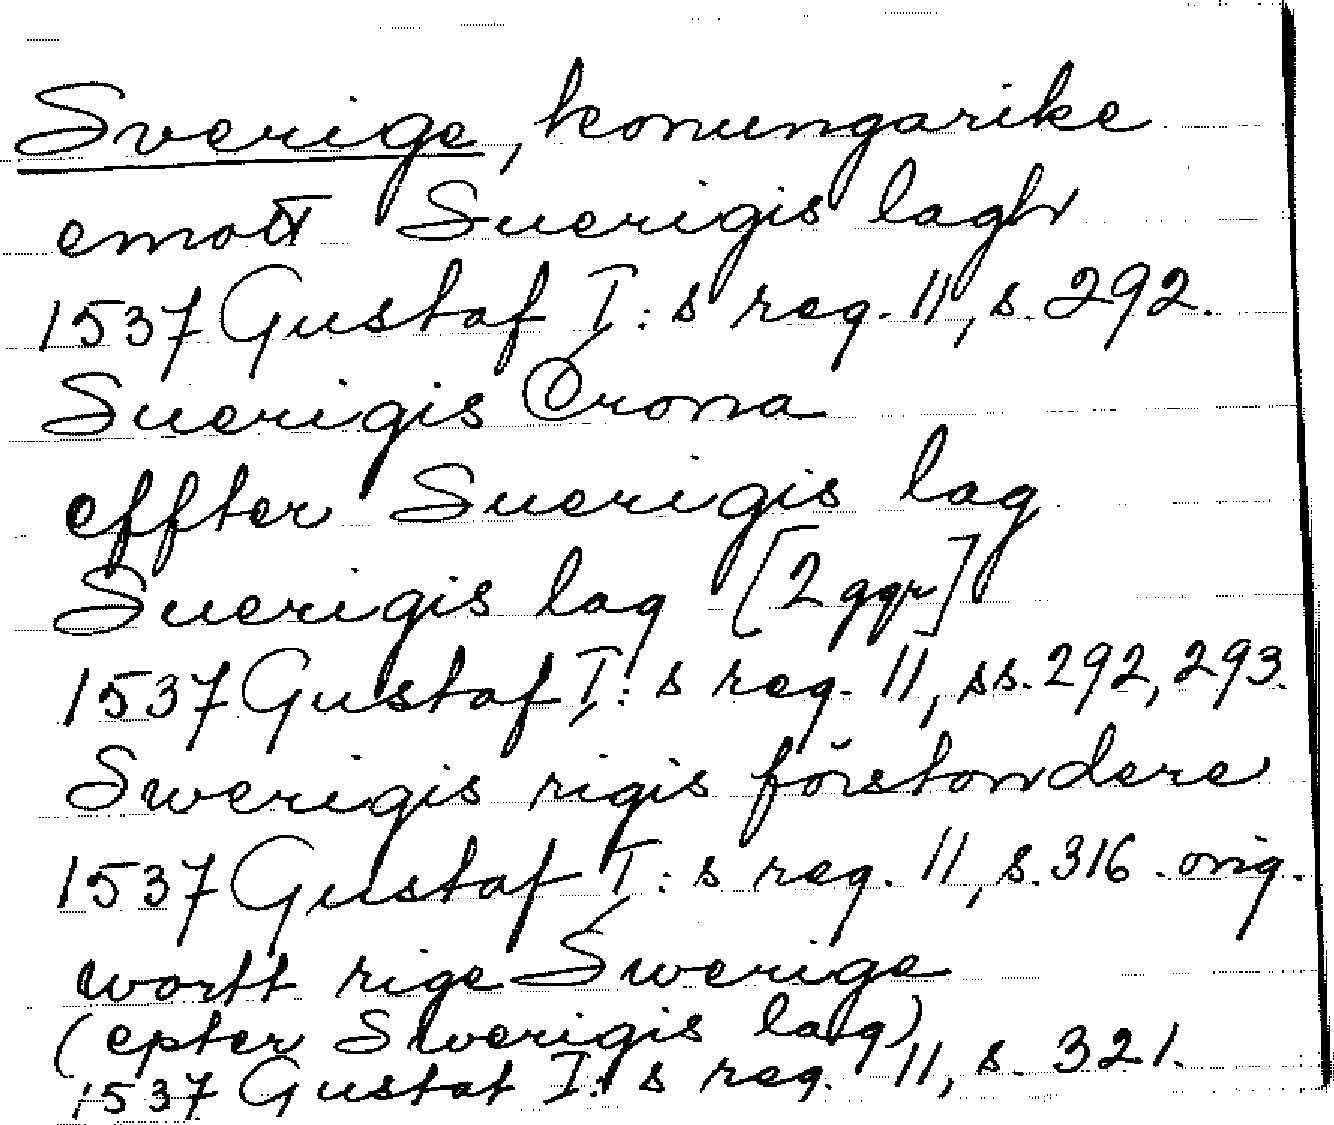 Sverige, konungarike
emott Suerigis lagh
1537 Gustaf I:s reg. 11, s. 292.
Suerigis Crona
effter Suerigis lag
Suerigis lag [2 ggr]
1537 Gustaf I:s reg. 11, ss. 292, 293.
Swerigis rigis förstondere
1537 Gustaf I:s reg. 11, s. 316. orig.
wortt rige Swerige
(epter Swerigis lag)
1537 Gustaf I:s reg. 11, s. 321.